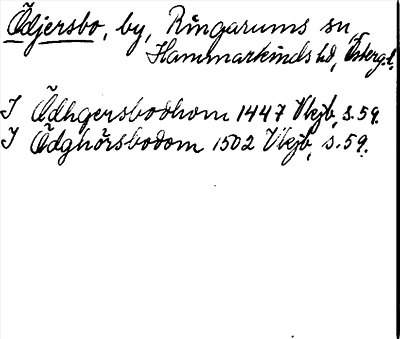 Ödjersbo, by, Ringarums sn,
Hammarkinds hd, Östergl.
I Ödhgersbodhom 1447 Vkjb, s. 59.
I Ödghörsbodom 1502 Vkjb, s. 59.